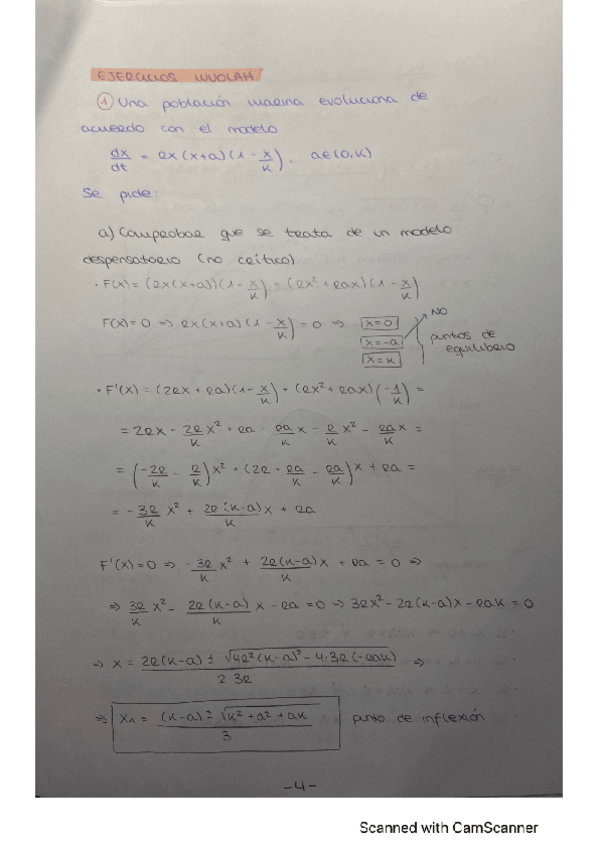 EJERCICIOS WUOLAH
① Una población marina evoluciona de
acuerdo con el modelo
dx/dt = rx(x+a)(1 - x/K), a∈(0,K)
Se pide:
a) Comprobar que se trata de un modelo
despensatorio (no crítico)
· F(x) = (rx(x+a))(1 - x/K) = (rx² + rax)(1 - x/K)
F(x)=0 => rx(x+a)(1 - x/K) = 0 => x=0
x=-a NO
x=K
puntos de equilibrio
· F'(x) = (2rx + ra)(1 - x/K) + (rx² + rax)(-1/K) =
= 2rx - 2r/K x² + ra - ra/K x - r/K x² - ra/K x =
= (-2r/K - r/K)x² + (2r - ra/K - ra/K)x + ra =
= -3r/K x² + 2r(K-a)/K x + ra
F'(x)=0 => -3r/K x² + 2r(K-a)/K x + ra = 0 =>
=> 3r/K x² - 2r(K-a)/K x - ra = 0 => 3rx² - 2r(K-a)x - raK = 0
=> x = 2r(K-a) ± √(4r²(K-a)² - 4·3r(-raK)) / 2·3r =>
=> x₁ = (K-a) ± √(K² + a² + aK) / 3 punto de inflexión
-4-
Scanned with CamScanner